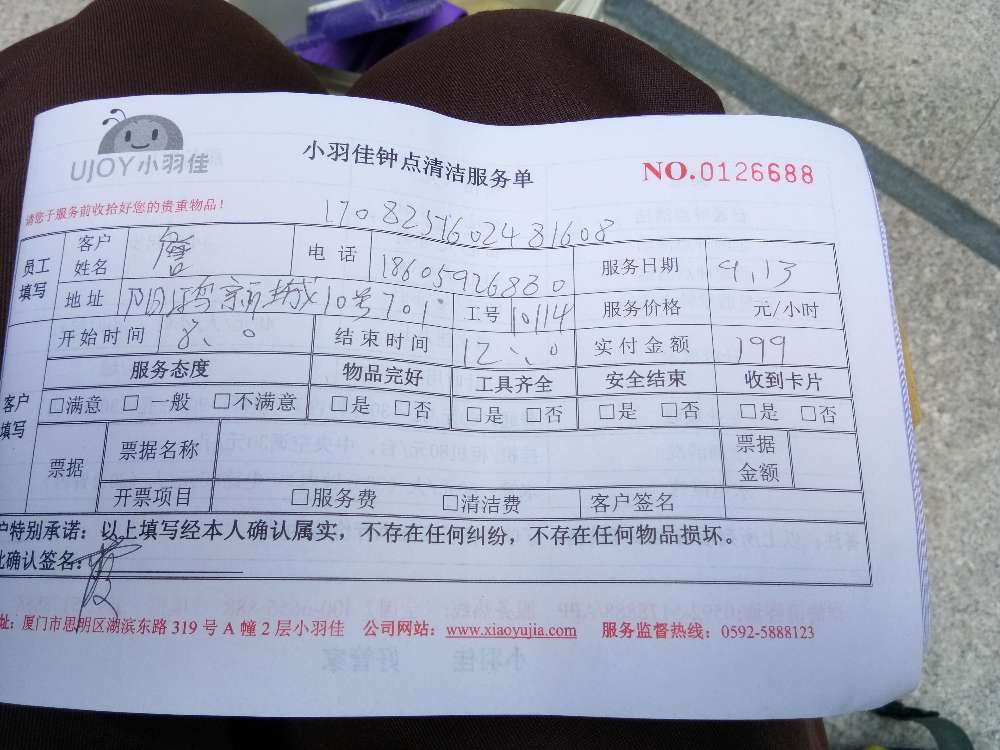 UJOY小羽佳
小羽佳钟点清洁服务单
NO.0126688
请您于服务前收拾好您的贵重物品！
员工填写 客户姓名 电话 18605926830 服务日期 9.13
地址 10号701 工号 10114 服务价格 元/小时
开始时间 8:0 结束时间 12:0 实付金额 199
服务态度 物品完好 工具齐全 安全结束 收到卡片
客户填写 □满意 □一般 □不满意 □是 □否 □是 □否 □是 □否 □是 □否
票据 票据名称 票据金额
开票项目 □服务费 □清洁费 客户签名
户特别承诺：以上填写经本人确认属实，不存在任何纠纷，不存在任何物品损坏。
此确认签名：
址：厦门市思明区湖滨东路 319 号 A 幢 2 层小羽佳 公司网站：www.xiaoyujia.com 服务监督热线：0592-5888123